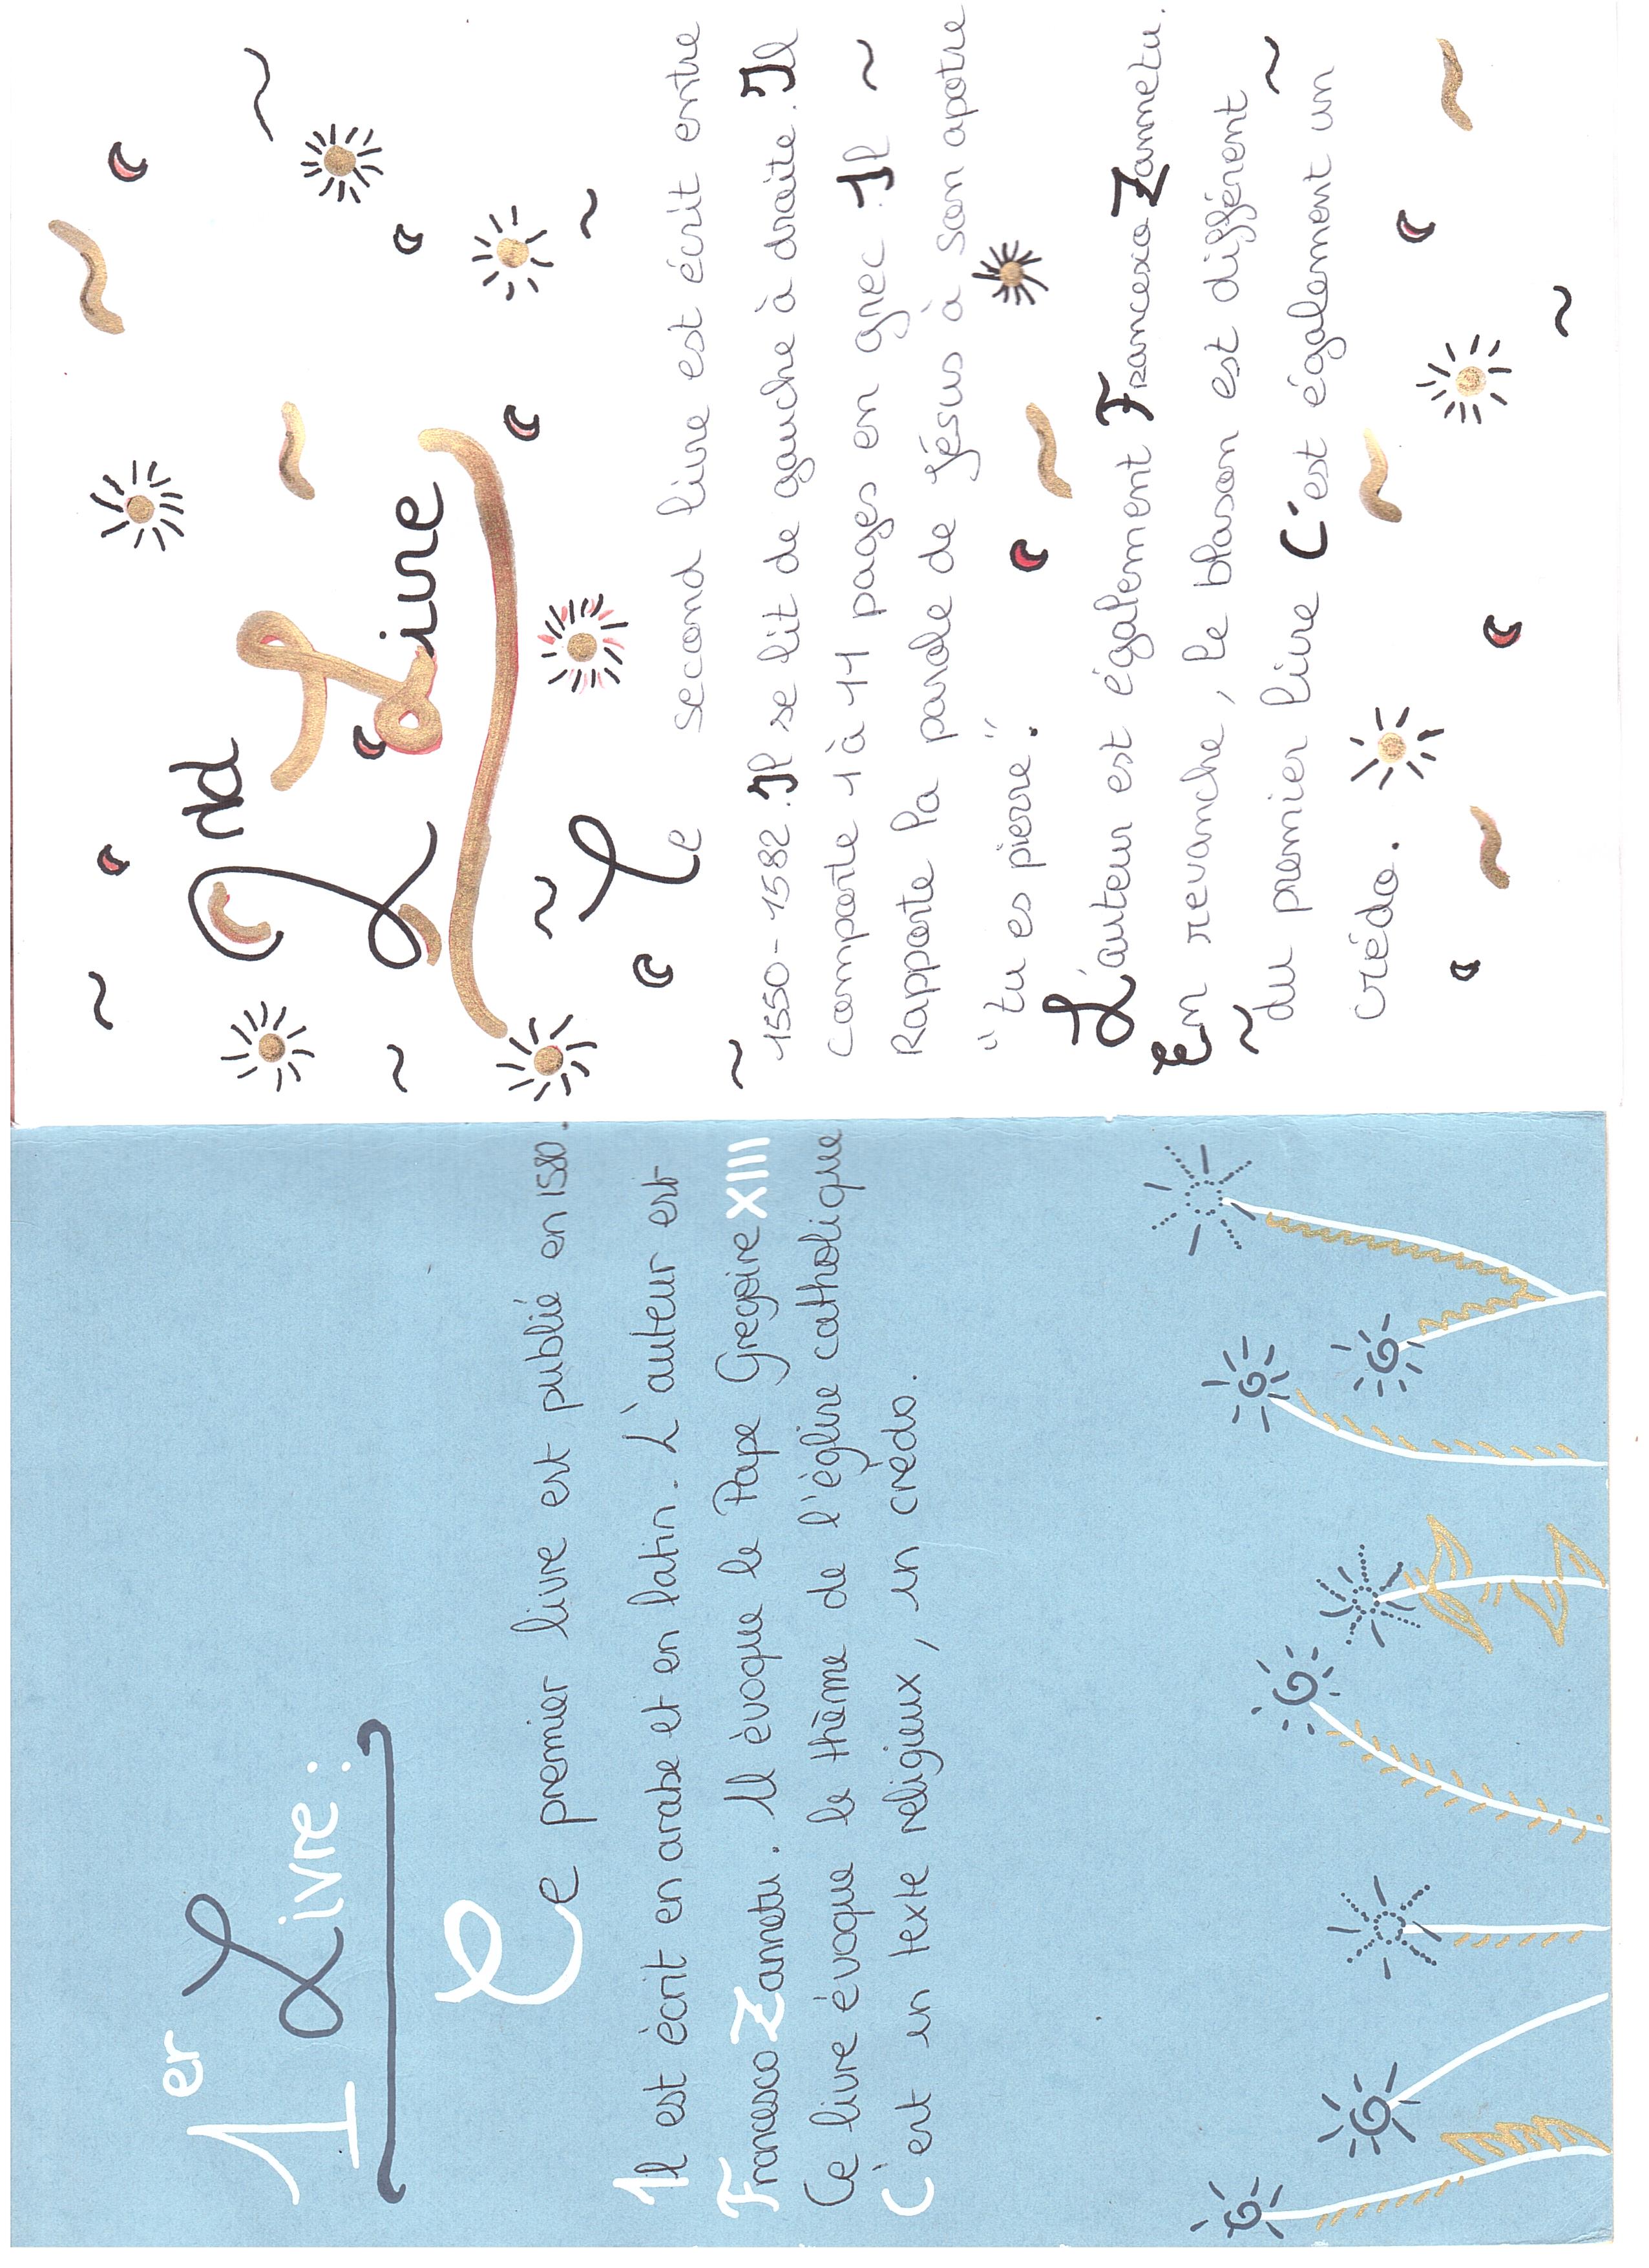 1er Livre:
Le premier livre est publié en 1580.
Il est écrit en arabe et en latin. L'auteur est
Francesco Zannetu. Il évoque le Pape Gregoire XIII
Ce livre évoque le thème de l'église catholique
C'est un texte religieux, un crédo.
2nd Livre
Le second livre est écrit entre
1550-1582. Il se lit de gauche à droite. Il
comporte 1 à 11 pages en grec. Il
Rapporte la parole de Jésus à son apotre
"tu es pierre".
L'auteur est également Francesco Zannetu.
En revanche, le blason est différent
du premier livre C'est également un
crédo.